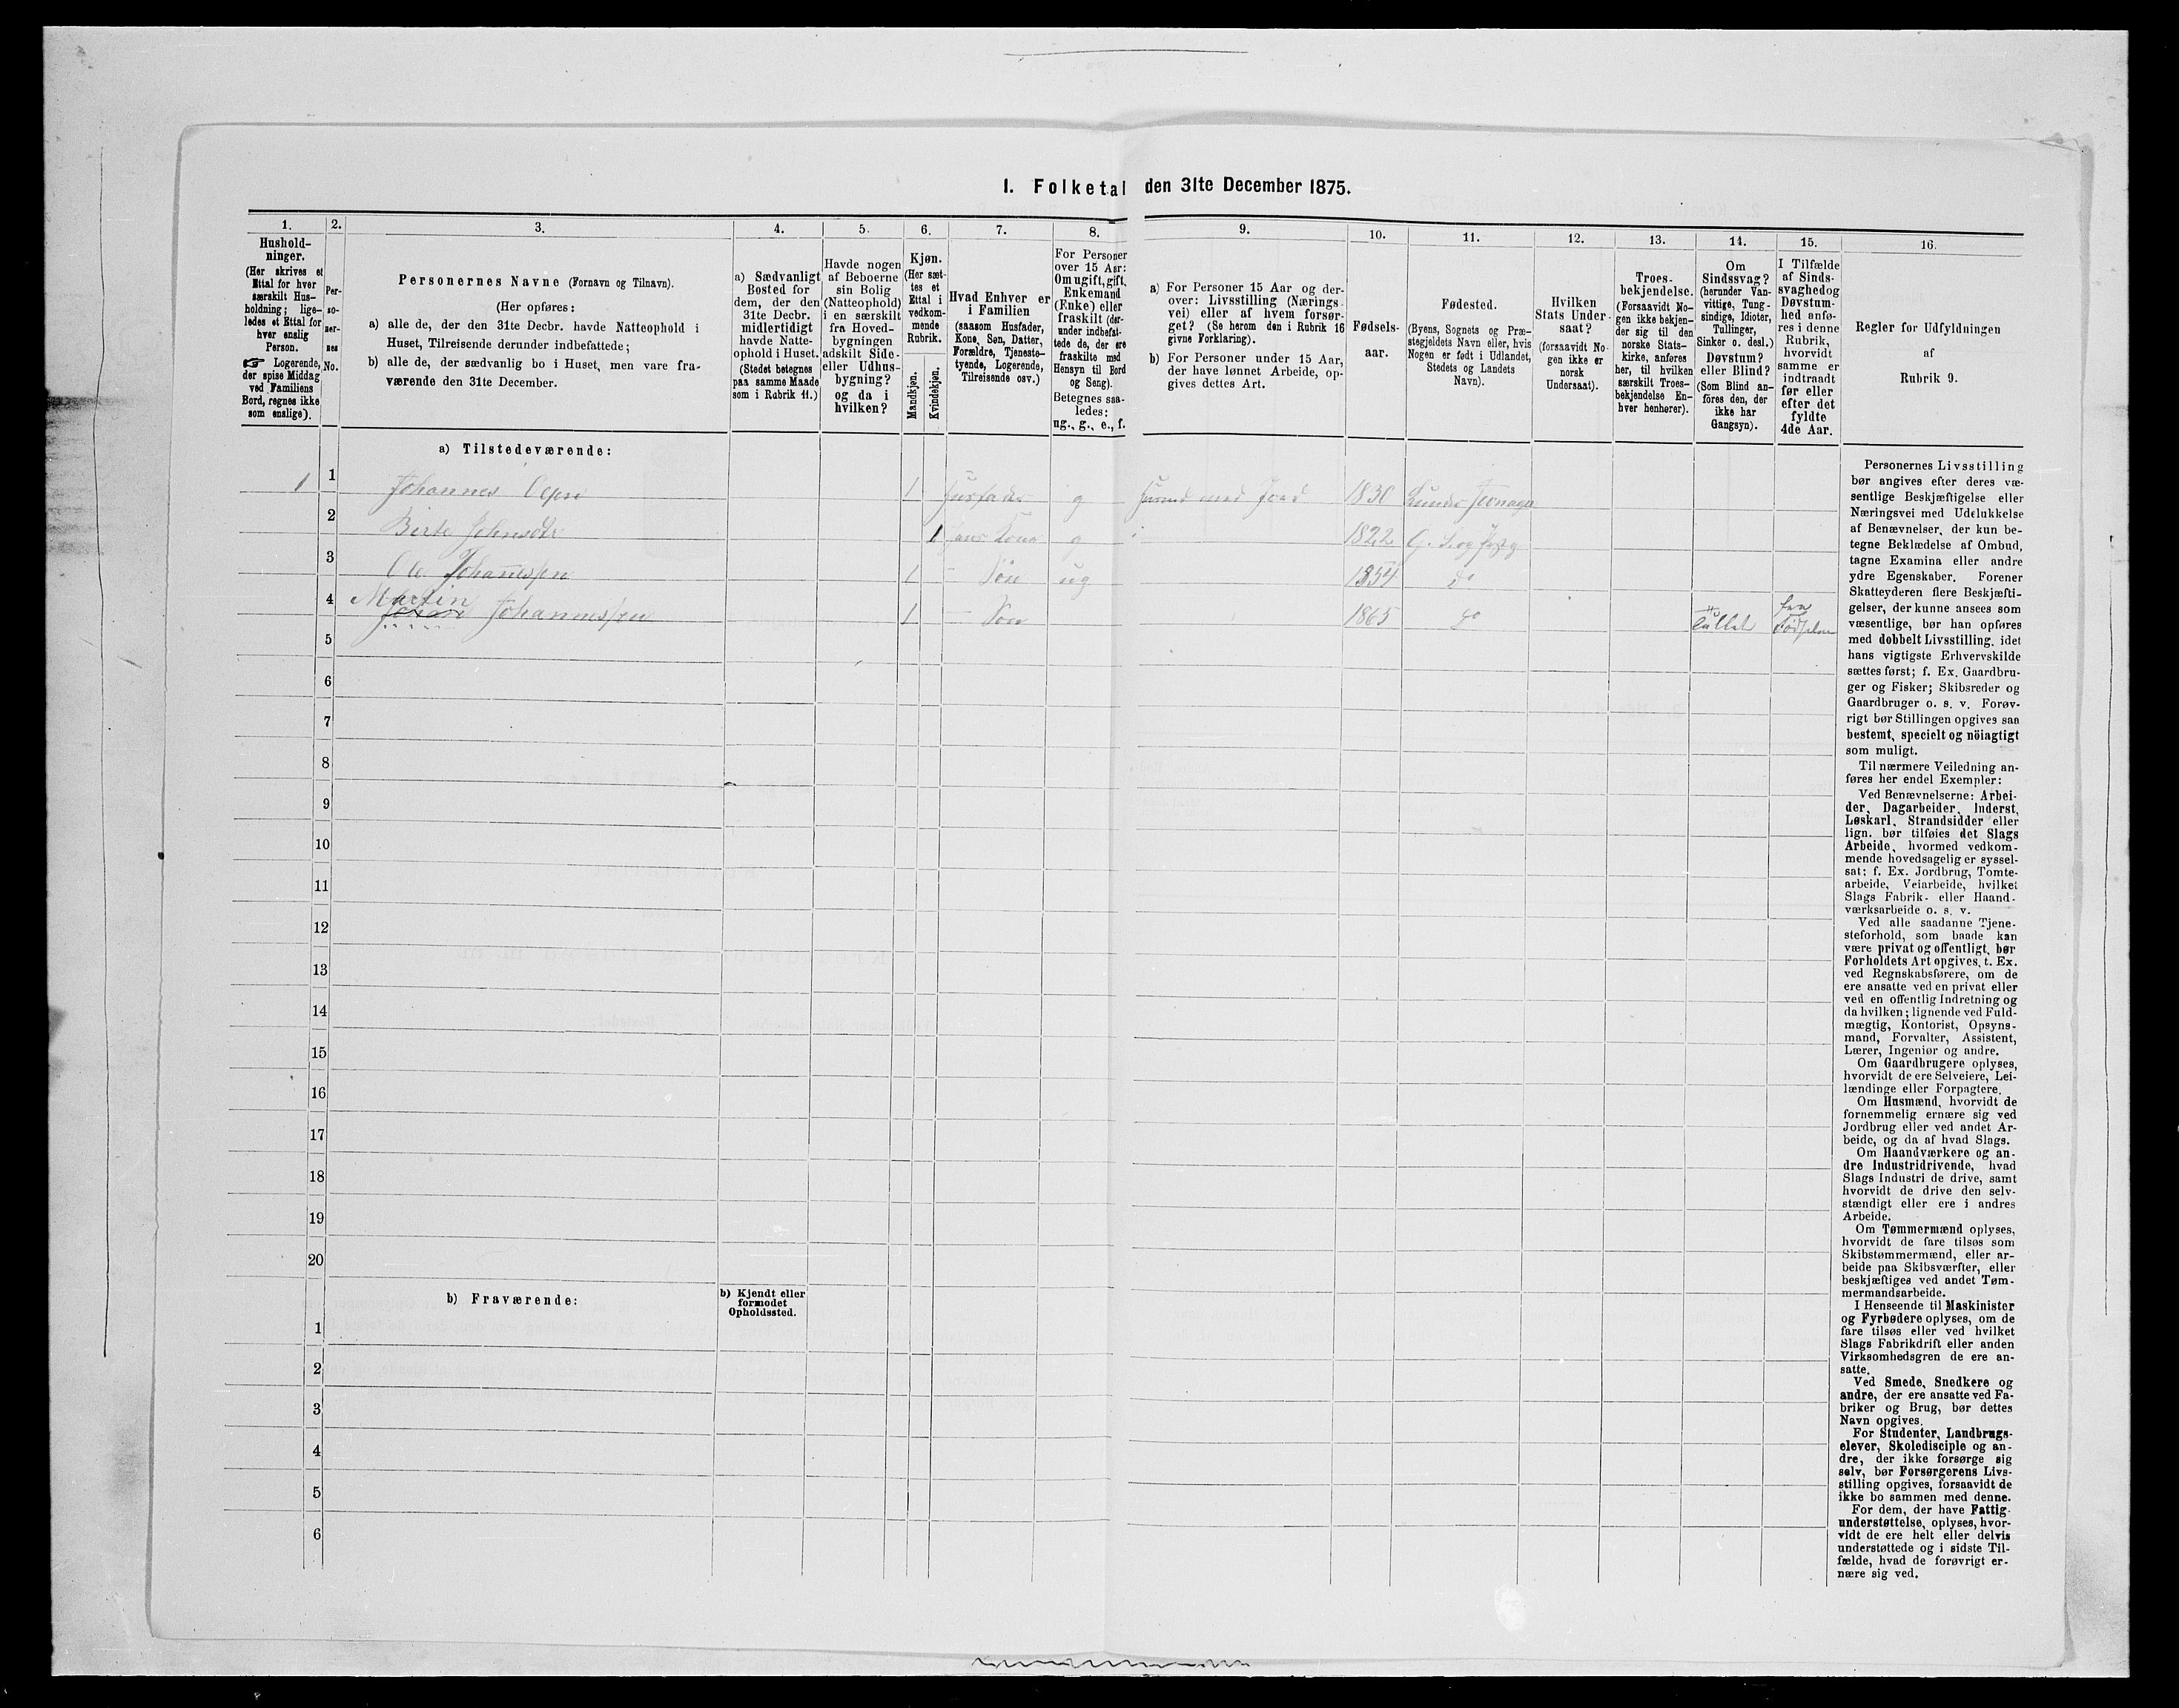 I. Folketal den 31te December 1875.
1.
Hushold-
ninger.
(Her skrives et
Ettal for hver
særskilt Hus-
holdning; lige-
ledes et Ettal for
hver enslig
Person.
☞ Logerende,
der spise Middag
ved Familiens
Bord, regnes ikke
som enslige).
2.
Per-
so-
ner-
nes
No.
3.
Personernes Navne (Fornavn og Tilnavn).
(Her opføres:
a) alle de, der den 31te Decbr. havde Natteophold i
Huset, Tilreisende derunder indbefattede;
b) alle de, der sædvanlig bo i Huset, men vare fra-
værende den 31te December.
4.
a) Sædvanligt
Bosted for
dem, der den
31te Decbr.
midlertidigt
havde Natte-
ophold i Huset.
(Stedet betegnes
paa samme Maade
som i Rubrik 11.)
5.
Havde nogen
af Beboerne
sin Bolig
(Natteophold)
i en særskilt
fra Hoved-
bygningen
adskilt Side-
eller Udhus-
bygning?
og da i
hvilken?
6.
Kjøn.
(Her sæt-
tes et
Ettal i
vedkom-
mende
Rubrik.
Mandkjøn.
Kvindekjøn.
7.
Hvad Enhver er
i Familien
(saasom Husfader,
Kone, Søn, Datter,
Forældre, Tjeneste-
tyende, Logerende,
Tilreisende osv.)
8.
For Personer
over 15 Aar:
Om ugift, gift,
Enkemand
(Enke) eller
fraskilt (der-
under indbefat-
tede de, der ere
fraskilte med
Hensyn til Bord
og Seng).
Betegnes saa-
ledes:
ug., g., e., f.
9.
a) For Personer 15 Aar og der-
over: Livsstilling (Nærings-
vei) eller af hvem forsør-
get? (Se herom den i Rubrik 16
givne Forklaring).
b) For Personer under 15 Aar,
der have lønnet Arbeide, op-
gives dettes Art.
10.
Fødsels-
aar.
11.
Fødested.
(Byens, Sognets og Præ-
stegjeldets Navn eller, hvis
Nogen er født i Udlandet,
Stedets og Landets
Navn).
12.
Hvilken
Stats Under-
saat?
(forsaavidt No-
gen ikke er
norsk
Undersaat).
13.
Troes-
bekjendelse.
(Forsaavidt No-
gen ikke bekjen-
der sig til den
norske Stats-
kirke, anføres
her, til hvilken
særskilt Troes-
bekjendelse En-
hver henhører).
14.
Om
Sindssvag?
(herunder Van-
vittige, Tung-
sindige, Idioter,
Tullinger,
Sinker o. desl.)
Døvstum?
eller Blind?
(Som Blind an-
føres den, der
ikke har
Gangsyn).
15.
I Tilfælde
af Sinds-
svaghed og
Døvstum-
hed anfø-
res i denne
Rubrik,
hvorvidt
samme er
indtraadt
før eller
efter det
fyldte
4de Aar.
16.
Regler for Udfyldningen
af
Rubrik 9.
a) Tilstedeværende:
1 1 Johannes 1 Husfader g med Jord 1830
2 Berte Johnsdtr 1 hans Kone g 1822
3 Ole Johannessen 1 - Søn ug 1854 do
4 Martin Johannessen 1 - Søn 1865 do Tullet fra Fødselen
5
6
7
8
9
10
11
12
13
14
15
16
17
18
19
20
b) Fraværende:
b) Kjendt eller
formodet
Opholdssted.
1
2
3
4
5
6
Personernes Livsstilling
bør angives efter deres væ-
sentlige Beskjæftigelse eller
Næringsvei med Udelukkelse
af Benævnelser, der kun be-
tegne Beklædelse af Ombud,
tagne Examina eller andre
ydre Egenskaber. Forener
Skatteyderen flere Beskjæfti-
gelser, der kunne ansees som
væsentlige, bør han opføres
med dobbelt Livsstilling, idet
hans vigtigste Erhvervskilde
sættes først; f. Ex. Gaardbru-
ger og Fisker; Skibsreder og
Gaardbruger o. s. v. Forøv-
rigt bør Stillingen opgives saa
bestemt, specielt og nöiagtigt
som muligt.
Til nærmere Veiledning an-
føres her endel Exempler:
Ved Benævnelserne: Arbei-
der, Dagarbeider, Inderst,
Løskarl, Strandsidder eller
lign. bør tilføies det Slags
Arbeide, hvormed vedkom-
mende hovedsagelig er syssel-
sat; f. Ex. Jordbrug, Tomte-
arbeide, Veiarbeide, hvilket
Slags Fabrik- eller Haand-
værksarbeide o. s. v.
Ved alle saadanne Tjene-
steforhold, som baade kan
være privat og offentligt, bør
Forholdets Art opgives, t. Ex.
ved Regnskabsførere, om de
ere ansatte ved en privat eller
ved en offentlig Indretning og
da hvilken; lignende ved Fuld-
mægtig, Kontorist, Opsyns-
mand, Forvalter, Assistent,
Lærer, Ingeniør og andre.
Om Gaardbrugere oplyses,
hvorvidt de ere Selveiere, Lei-
lændinge eller Forpagtere.
Om Husmænd, hvorvidt de
fornemmelig ernære sig ved
Jordbrug eller ved andet Ar-
beide, og da af hvad Slags.
Om Haandværkere og an-
dre Industridrivende, hvad
Slags Industri de drive, samt
hvorvidt de drive den selv-
stændigt eller ere i andres
Arbeide.
Om Tømmermænd oplyses,
hvorvidt de fare tilsøs som
Skibstømmermænd, eller ar-
beide paa Skibsværfter, eller
beskjæftiges ved andet Tøm-
mermandsarbeide.
I Henseende til Maskinister
og Fyrbødere oplyses, om de
fare tilsøs eller ved hvilket
Slags Fabrikdrift eller anden
Virksomhedsgren de ere an-
satte.
Ved Smede, Snedkere og
andre, der ere ansatte ved Fa-
briker og Brug, bør dettes
Navn opgives.
For Studenter, Landbrugs-
elever, Skoledisciple og an-
dre, der ikke forsørge sig
selv, bør Forsørgerens Livs-
stilling opgives, forsaavidt de
ikke bo sammen med denne.
For dem, der have Fattig-
understøttelse, oplyses, hvor-
vidt de ere helt eller delvis
understøttede og i sidste Til-
fælde, hvad de forøvrigt er-
nære sig ved.